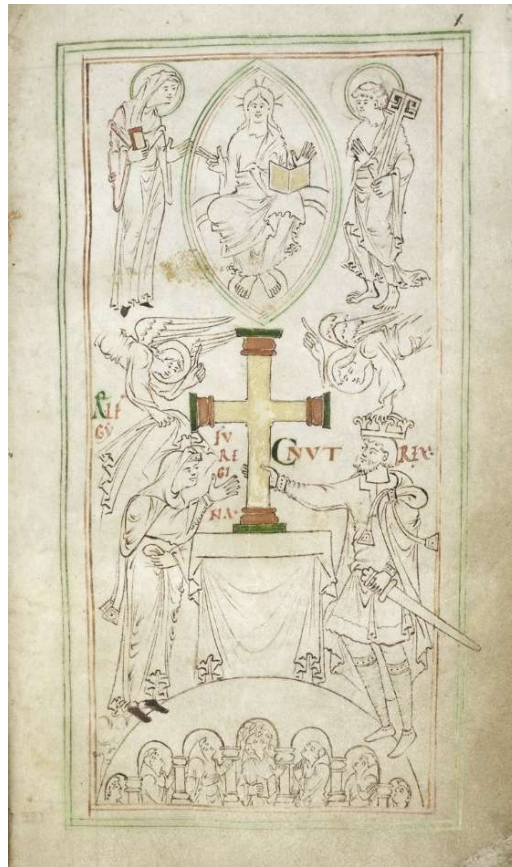 ÆLF
GY
FV
RE
GI
NA·
CNVT REX·